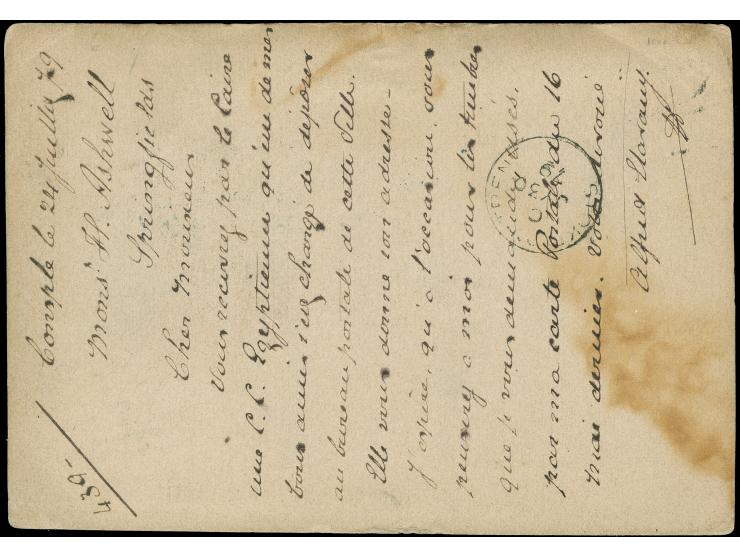 439
Comple le 24 Juillet 79
Mons. H. Ashwell
Springfields
Cher Monsieur
Vous recevez par le Caire
une C. P. Egyptienne qu'un de mes
bons amis s'est chargé de déposer
au bureau postale de cette Ville.
Elle vous donne son adresse –
J'espère, qu'à l'occasion, vous
penserez à moi pour les timbres
que je vous demandés usés,
par ma carte Postale du 16
Mai dernier. Votre dévoué
Alfred
ADEN